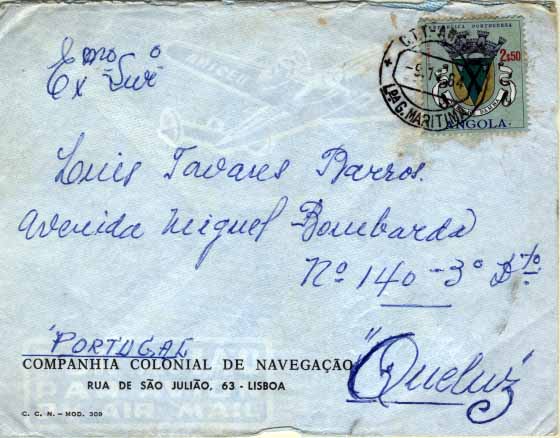 Exmo Snr
Luis Tavares Barros.
Avenida Miguel Bombarda
Nº 140 - 3º Dto.
"PORTUGAL
"Queluz"
COMPANHIA COLONIAL DE NAVEGAÇÃO
RUA DE SÃO JULIÃO, 63 - LISBOA
C. C. N. - MOD. 309
PORTUGUESA
2$50
ANGOLA
MARITIMA
AIR MAIL